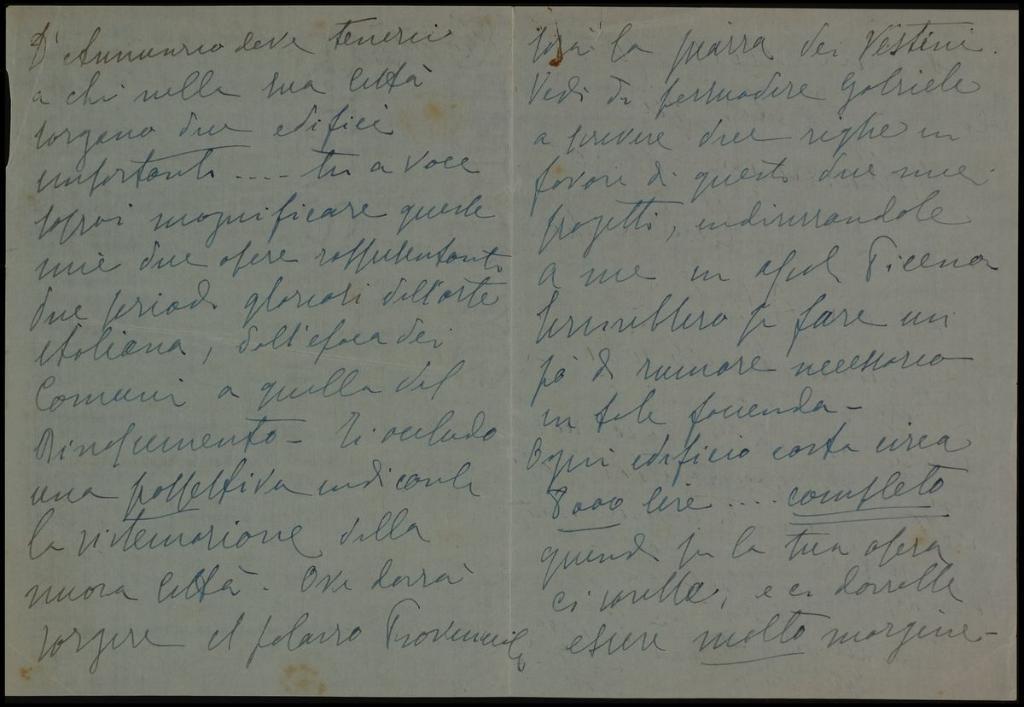 D'Annunzio deve tenerci
a chi nella sua Città
sorgano due edifici
importanti .... tu a voce
saprai magnificare queste
mie due opere rappresentanti
due periodi gloriosi dell'arte
italiana, dall'epoca dei
Comuni a quella del
Rinascimento - Ti accludo
una prospettiva indicante
la sistemazione della
nuova Città. Ove dovrà
sorgere il palazzo Provinciale
sarà la piazza dei Vestini.
Vedi di persuadere Gabriele
a scrivere due righe in
favore di questi due miei
progetti, indirizzandole
a me in Ascoli Piceno
servirebbero per fare un
pò di rumore necessario
in tale faccenda -
Ogni edificio costa circa
8000 lire .... completo
quindi per la tua opera
ci sarebbe, e ci dovrebbe
essere molto margine -